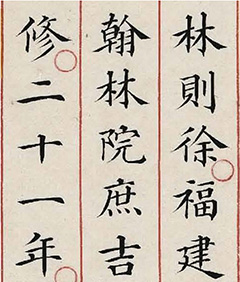 林則徐福建
翰林院庶吉
修二十一年